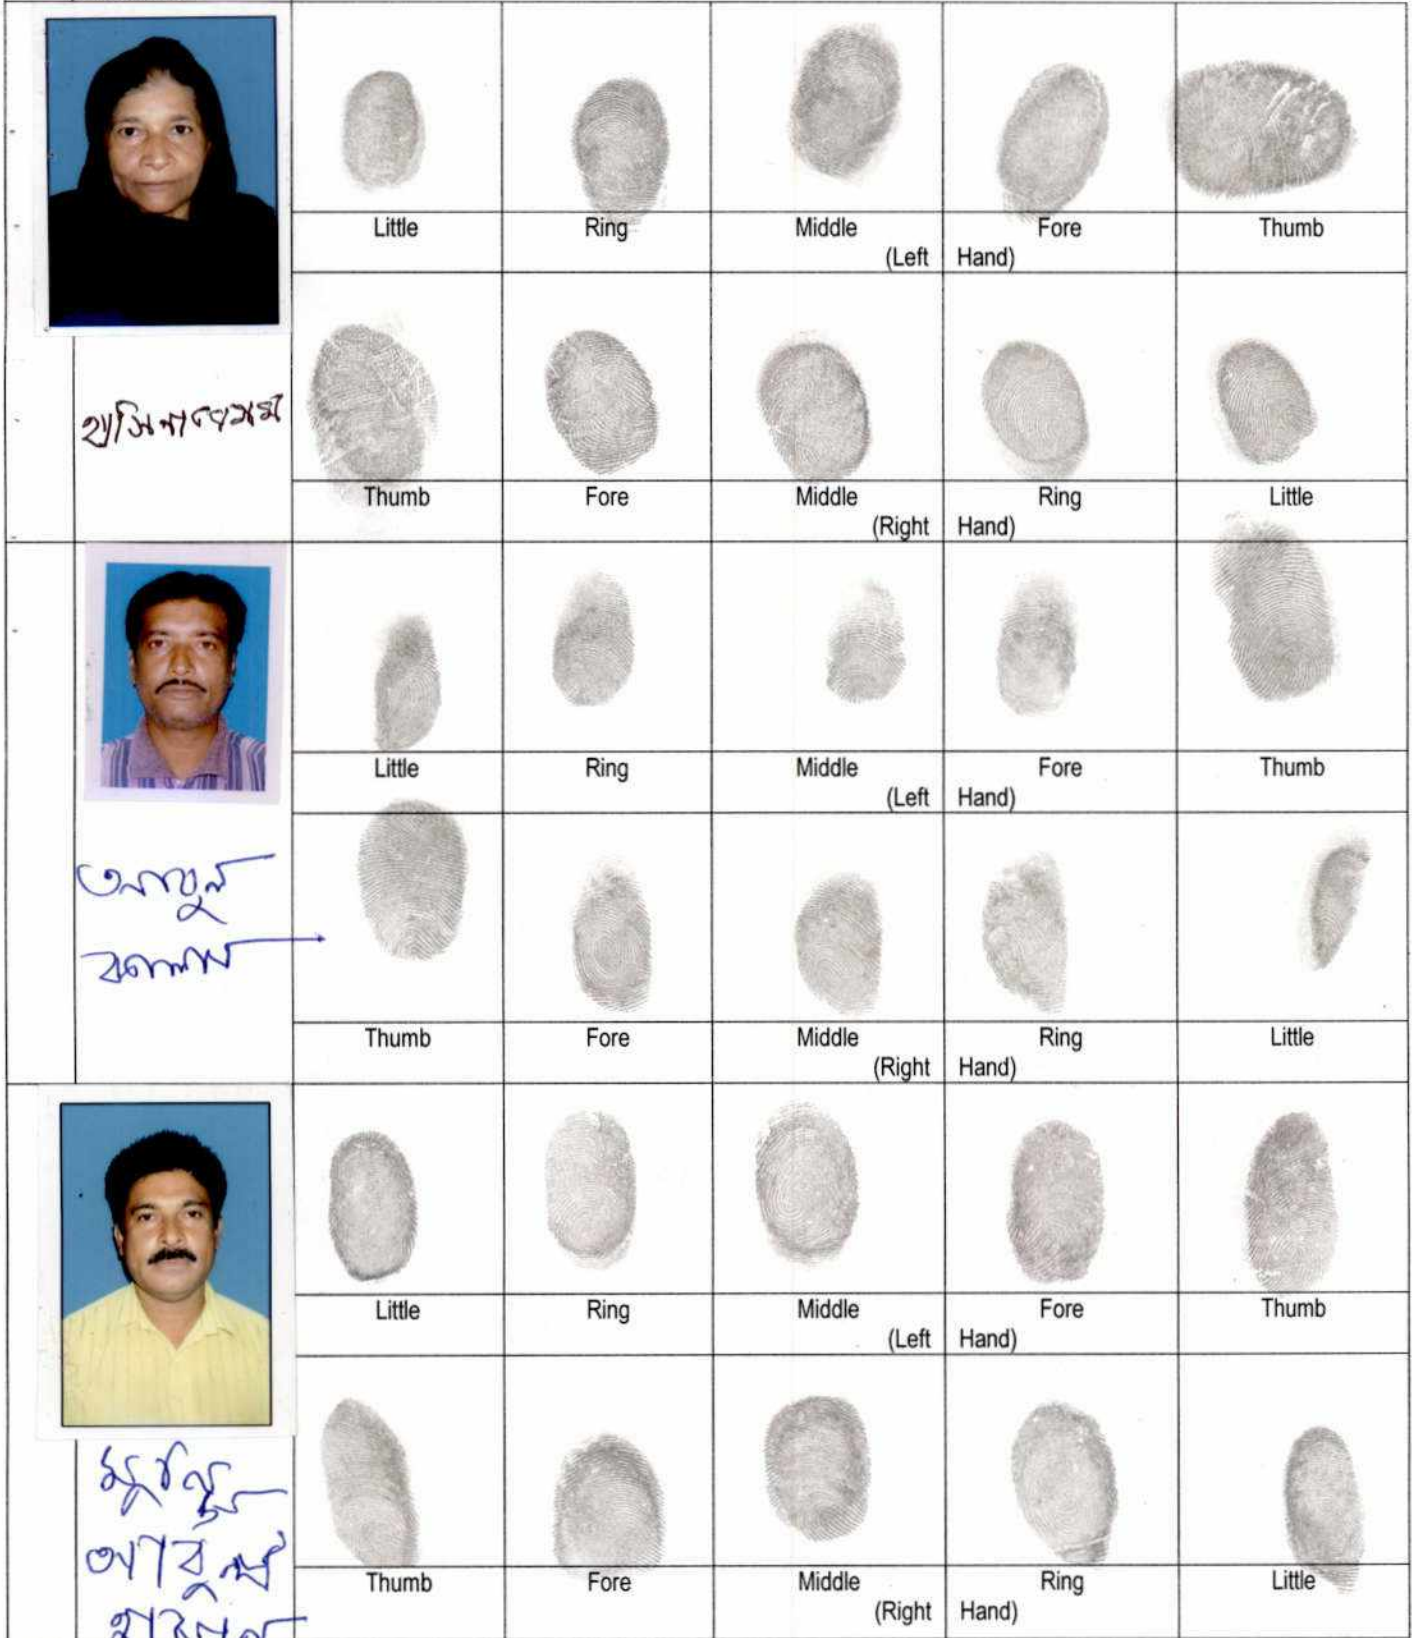 Little Ring Middle Fore Thumb
(Left Hand)
হাসিনা বেগম
Thumb Fore Middle Ring Little
(Right Hand)
Little Ring Middle Fore Thumb
(Left Hand)
আবুল
কালাম
Thumb Fore Middle Ring Little
(Right Hand)
Little Ring Middle Fore Thumb
(Left Hand)
Thumb Fore Middle Ring Little
(Right Hand)